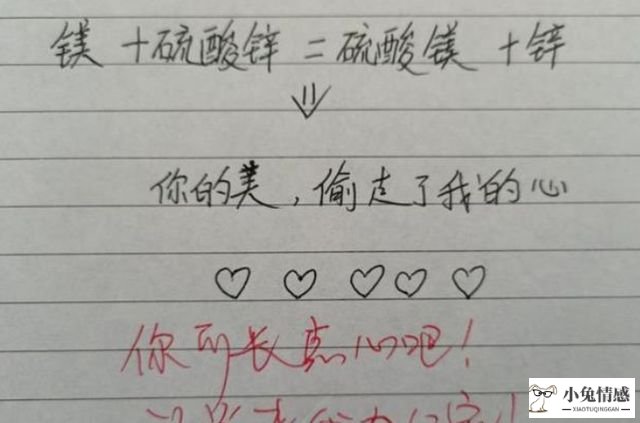 镁 + 硫酸锌 = 硫酸镁 + 锌
⇓
你的美，偷走了我的心
♡ ♡ ♡ ♡ ♡
你可长点心吧！
小兔情感
XIAOTUQINGGAN